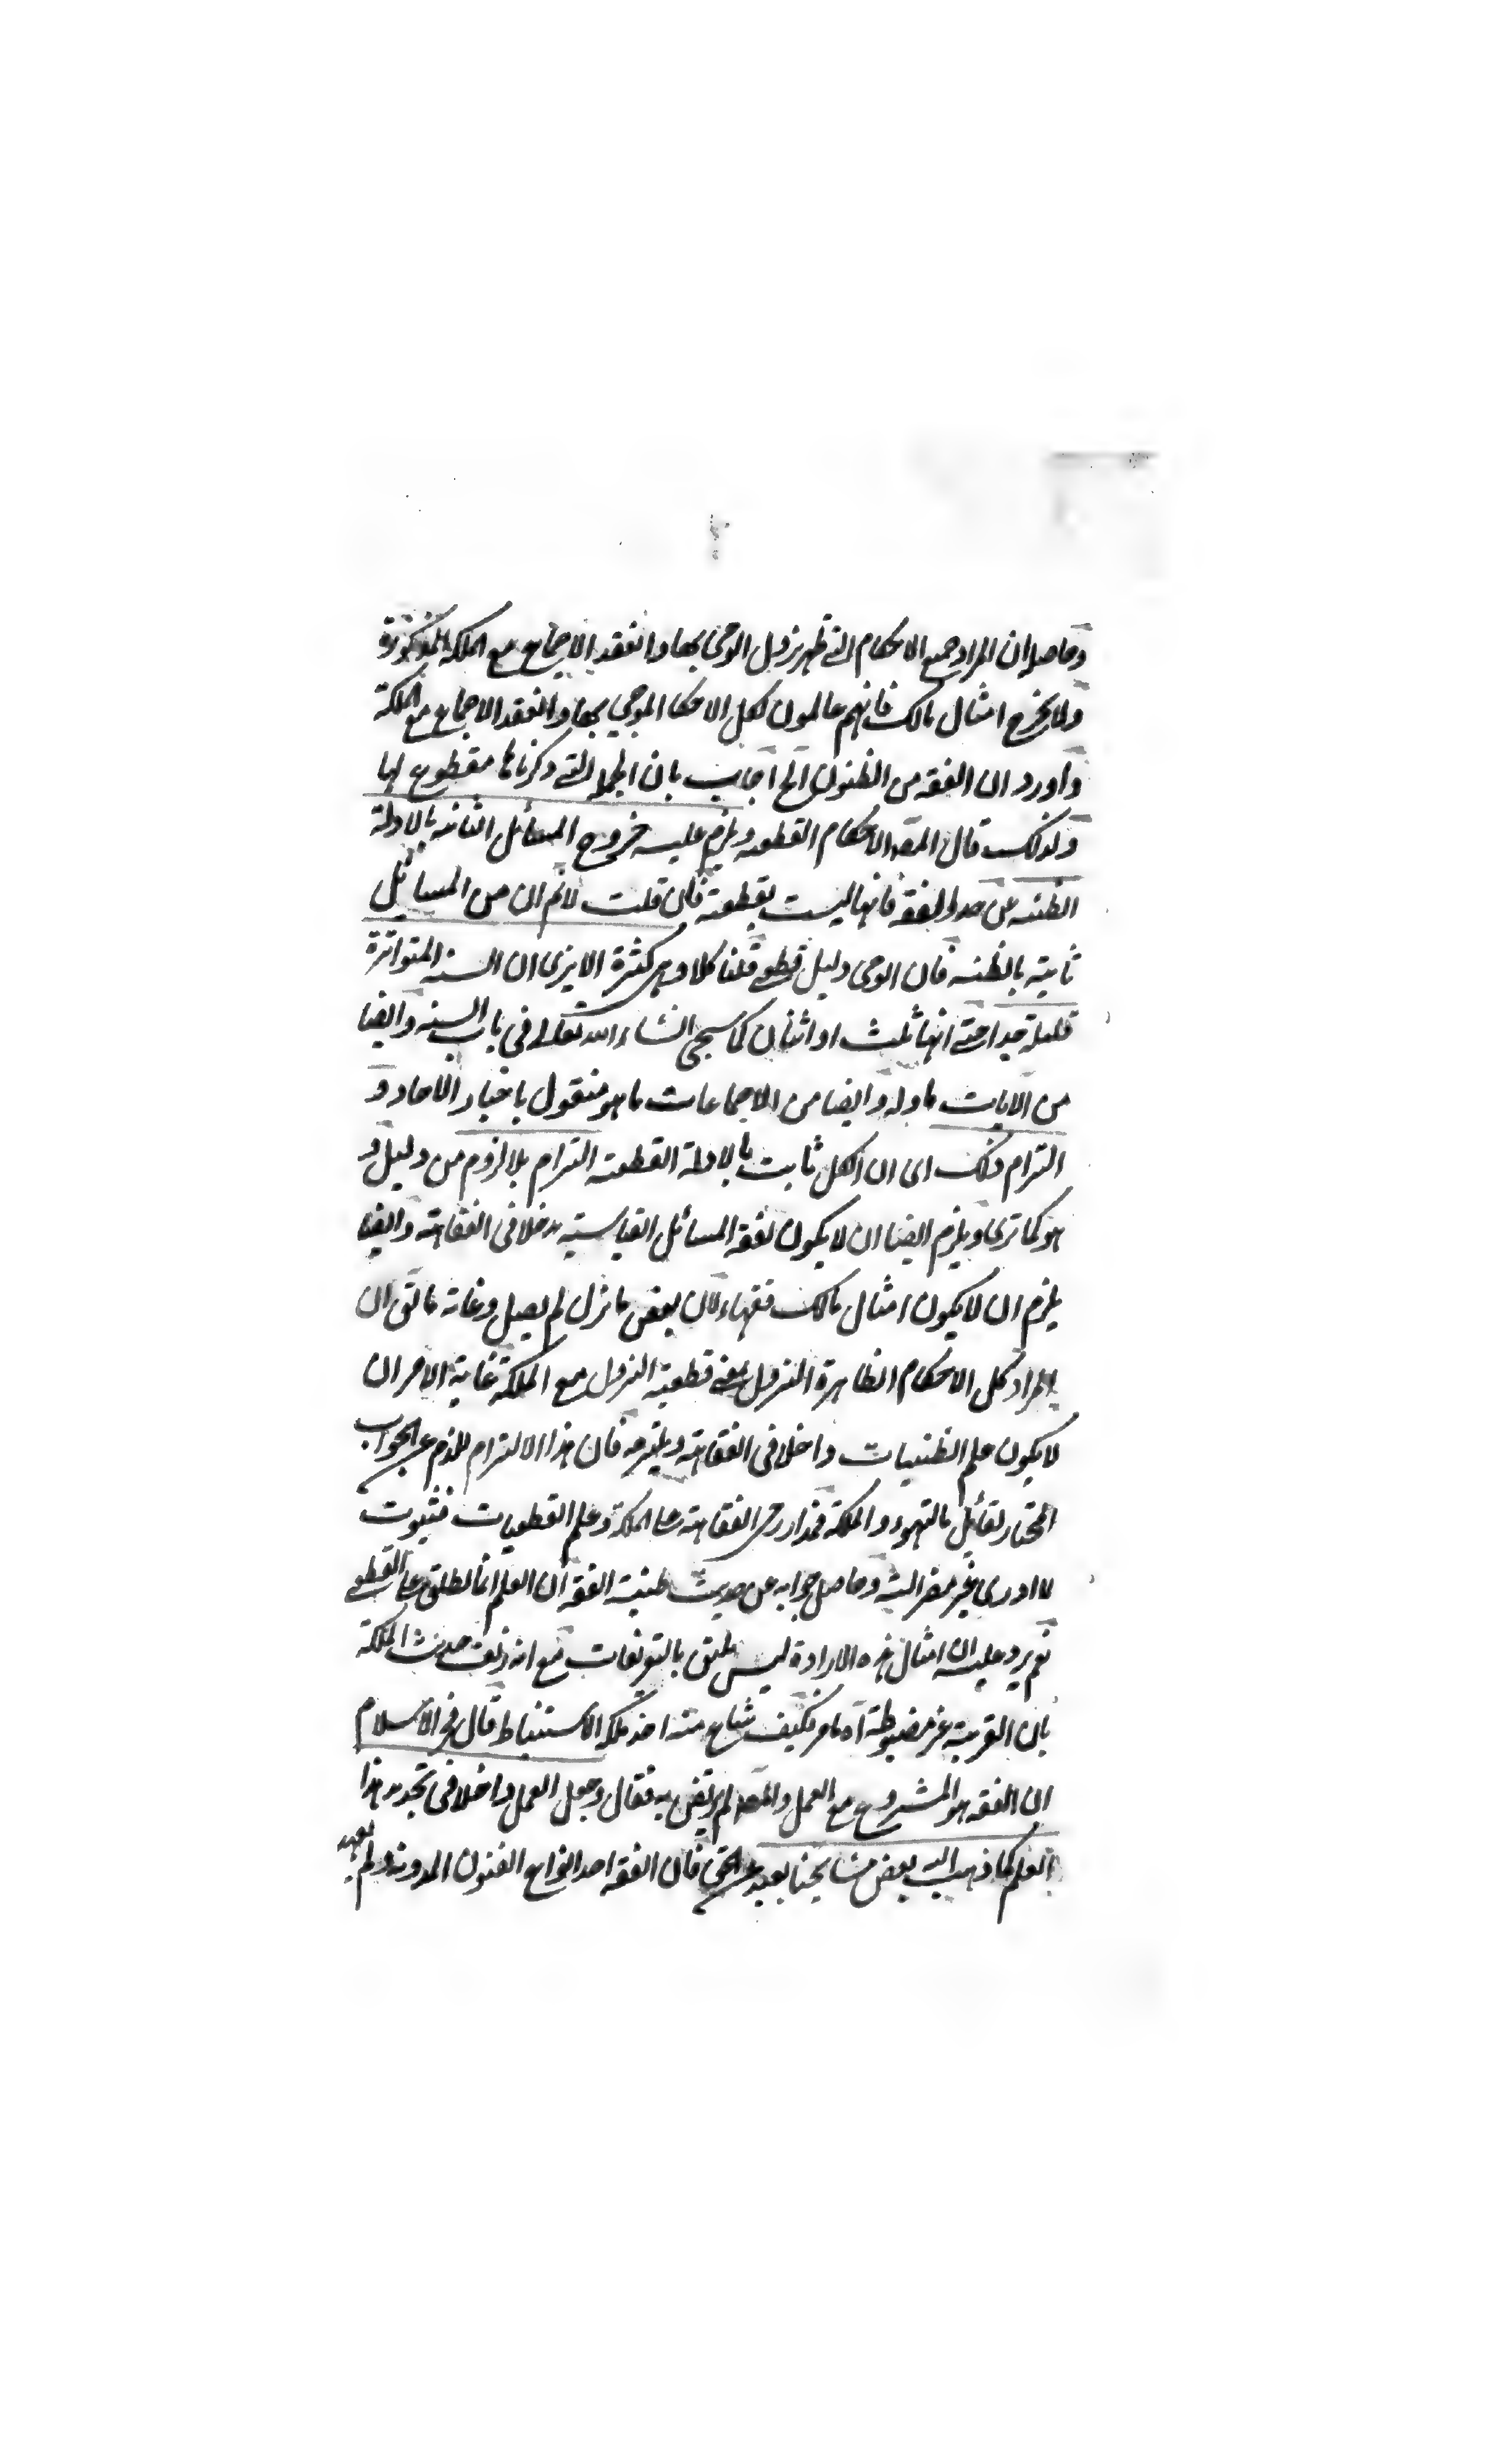 وحاصله ان المراد جميع الاحكام التي ظهر نزول الوحي بها وانعقد الاجماع مع الملكة المذكورة
ولا يخرج امثال مالك فانهم عالمون لكل الاحكا الموحي بها وانعقد الاجماع مع الملكة
واورد ان الفقه من الظنون الخ اجاب بان الجملة التي ذكرناها مقطوع لها
ولذلك قال المص الاحكام القطعية ويلزم عليه خروج المسائل الثابتة بالادلة
الظنية عن حد الفقه فانها ليست بقطعية فان قلت لانم ان من المسائل
ثابتة بالظنية فان الوحي دليل قطعي قلنا كلا وهي كثرة الا يرى ان السنة المتواترة
قليلة جدا حتى انها ثلث او اثنان كما سيجي انشاء الله تعالى في باب السنة وايضا
من الايات ماوله وايضا من الاجماعات ما هو منقول باخبار الاحاد و
التزام ذلك اى ان الكل ثابت بالادلة القطعية التزام بلا لزوم من دليل و
هو كما ترى ويلزم ايضا ان لا يكون لفقه المسائل القياسية مدخلا في الفقاهة وايضا
يلزم ان لا يكون امثال مالك فقهاء لان بعض ما نزل لم يصل وغاية مالق ان
المراد كل الاحكام الظاهرة النزول يعني قطعية النزول مع الملكة غاية الامر ان
لا يكون علم الظنيات داخلا في الفقاهة ويلتزمه فان هذا الالتزام للذم عن الجواب
المختار لقائل بالتهيوء والملكة فمدار رحى الفقاهة على الملكة وعلم القطعيات فثبوت
لا ادرى غير مضر البتة وحاصل جوابه عن حديث ظنية الفقه ان العلم انما يطلق على القطعي
نعم يرد عليه ان امثال هذه الارادة ليس يليق بالتعريفات مع انه زيف حديث الملكة
بان القريبة غير مضبوطة اه مامر فكيف شاع منه اخذ ملكة الاستنباط قال فخر الاسلام
ان الفقه هو المشروع مع العمل والمص لم يرتض به فقال وجعل العمل داخلا في تحديد هذا
العلم كما ذهب اليه بعض مشايخنا بعيد عن الحق فان الفقه احد انواع الفنون المدونة ولم يعهد